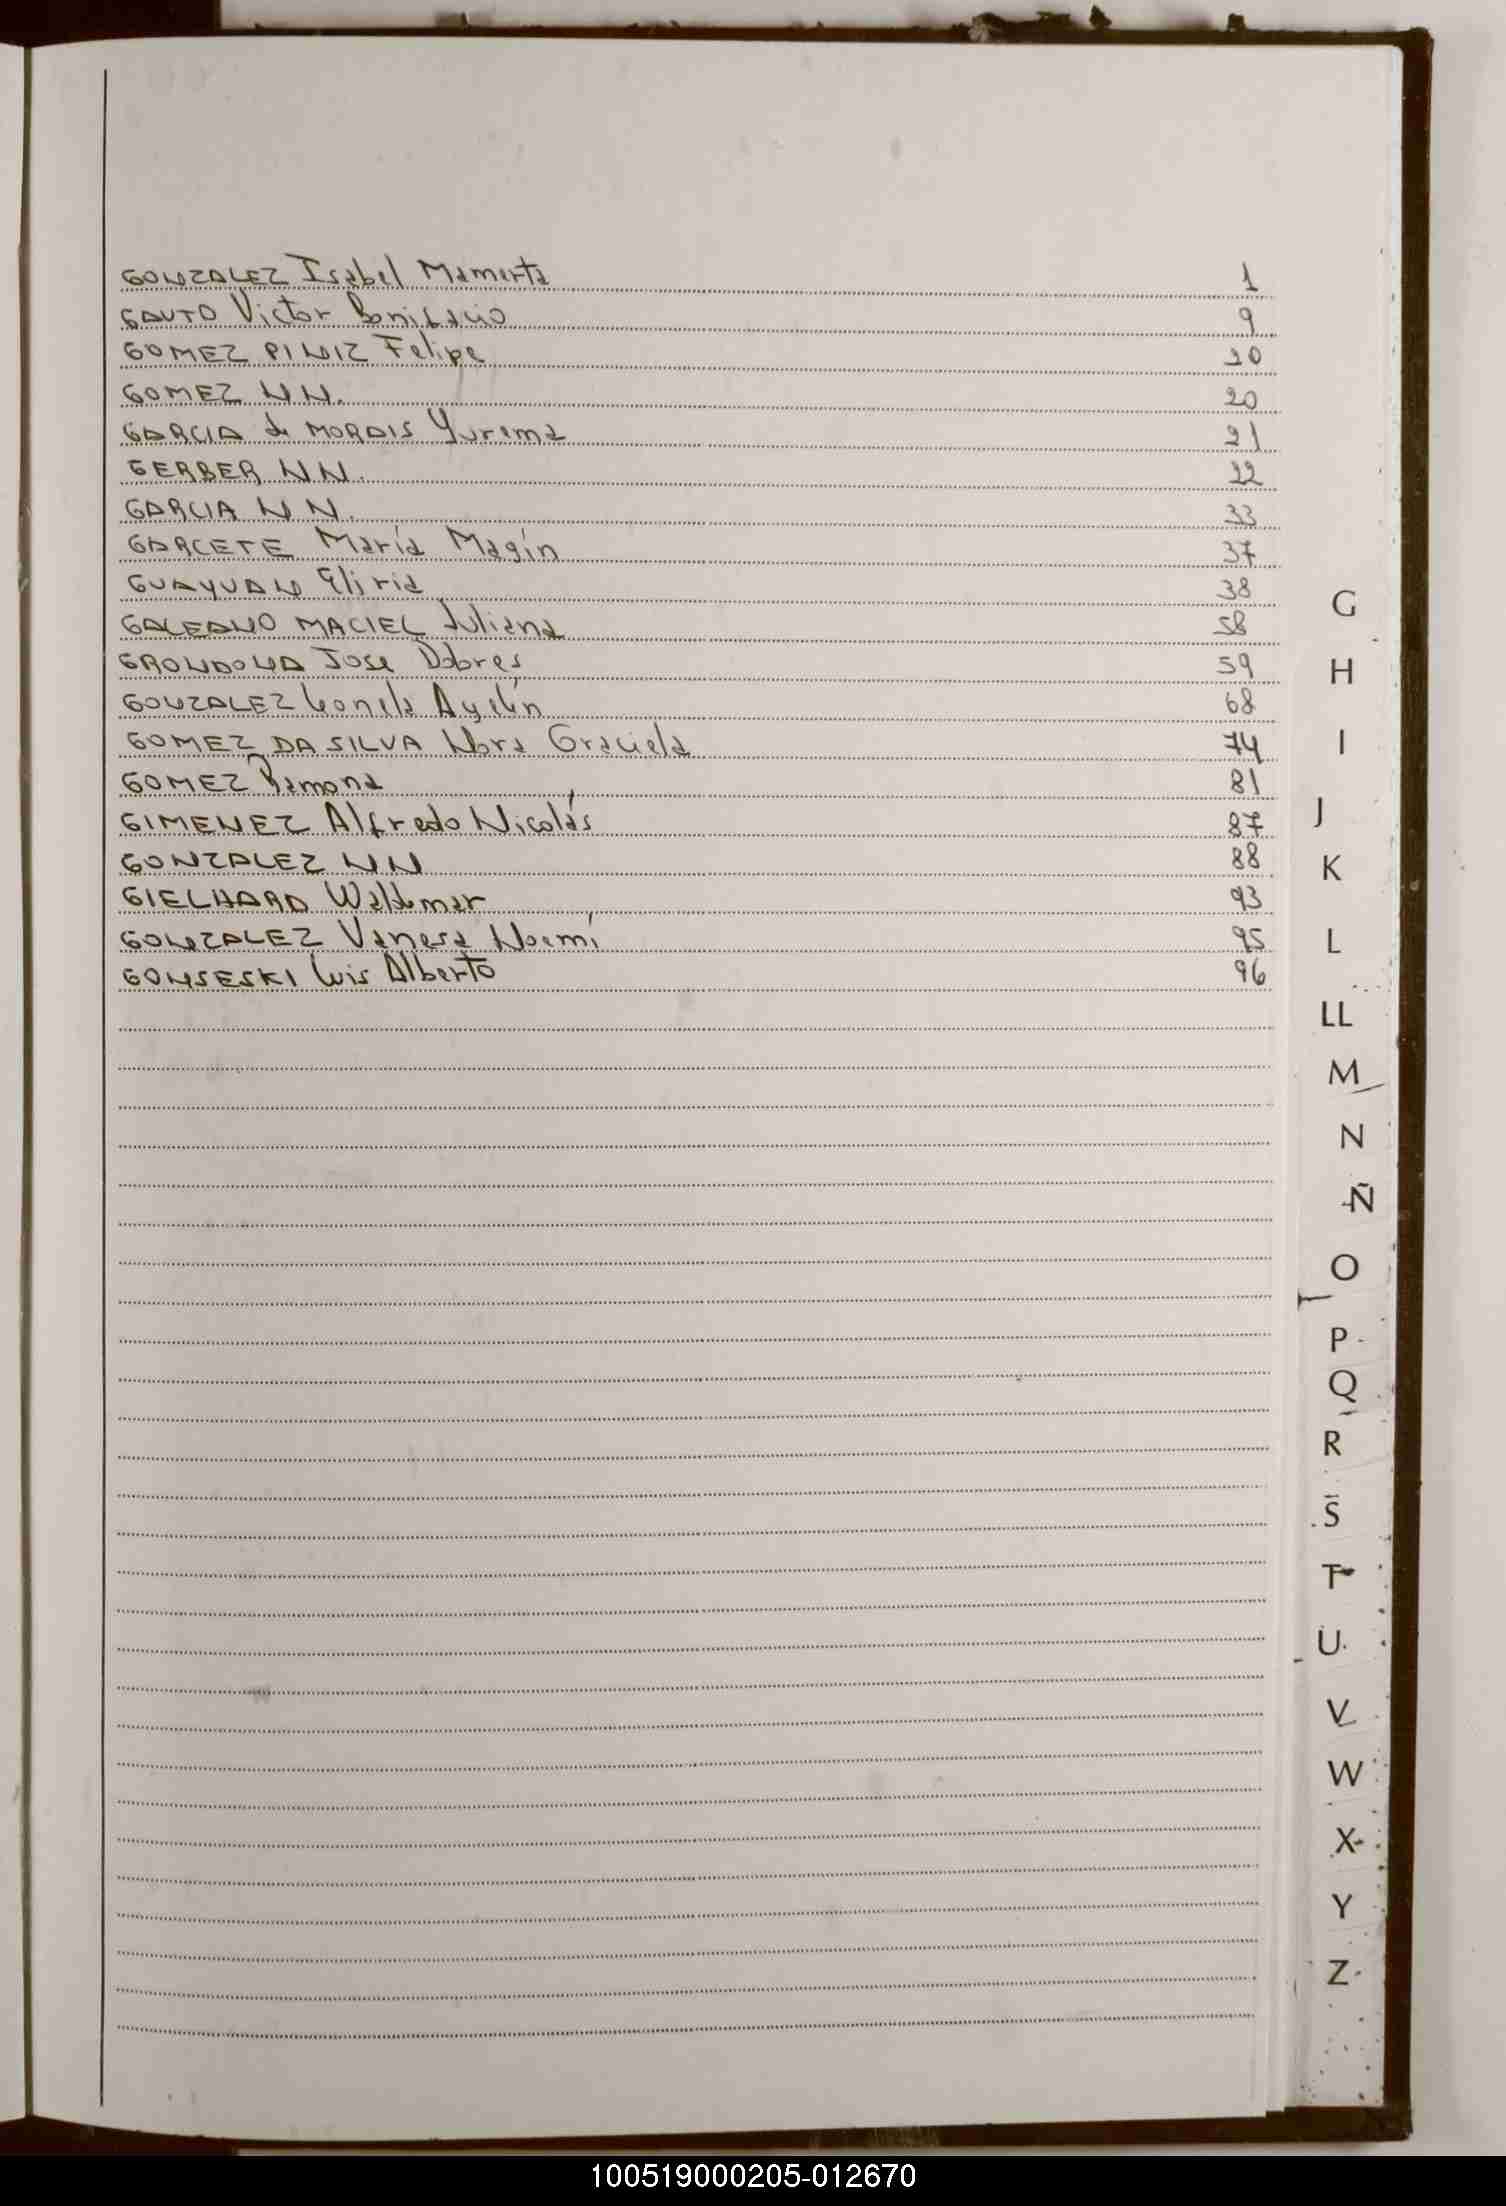 GONZALEZ Isabel Mamerta 1
GAUTO Victor Bonifacio 9
GOMEZ PINIZ Felipe 20
GOMEZ NN. 20
GARCIA de MORAIS Yurema 21
GERBER NN. 22
GARCIA NN. 33
GARCETE María Magín 37
GUAYUAN 38
GALEANO MACIEL Juliana 58
GRONDONA Jose Dobres 59
GONZALEZ Leonela Ayelín 68
GOMEZ DA SILVA Nora Graciela 74
GOMEZ Ramona 81
GIMENEZ Alfredo Nicolás 87
GONZALEZ NN 88
GIELHARD Waldemar 93
GONZALEZ Vanesa Noemí 95
GOMSESKI Luis Alberto 96
G
H
I
J
K
L
LL
M
N
Ñ
O
P
Q
R
S
T
U
V
W
X
Y
Z
100519000205-012670